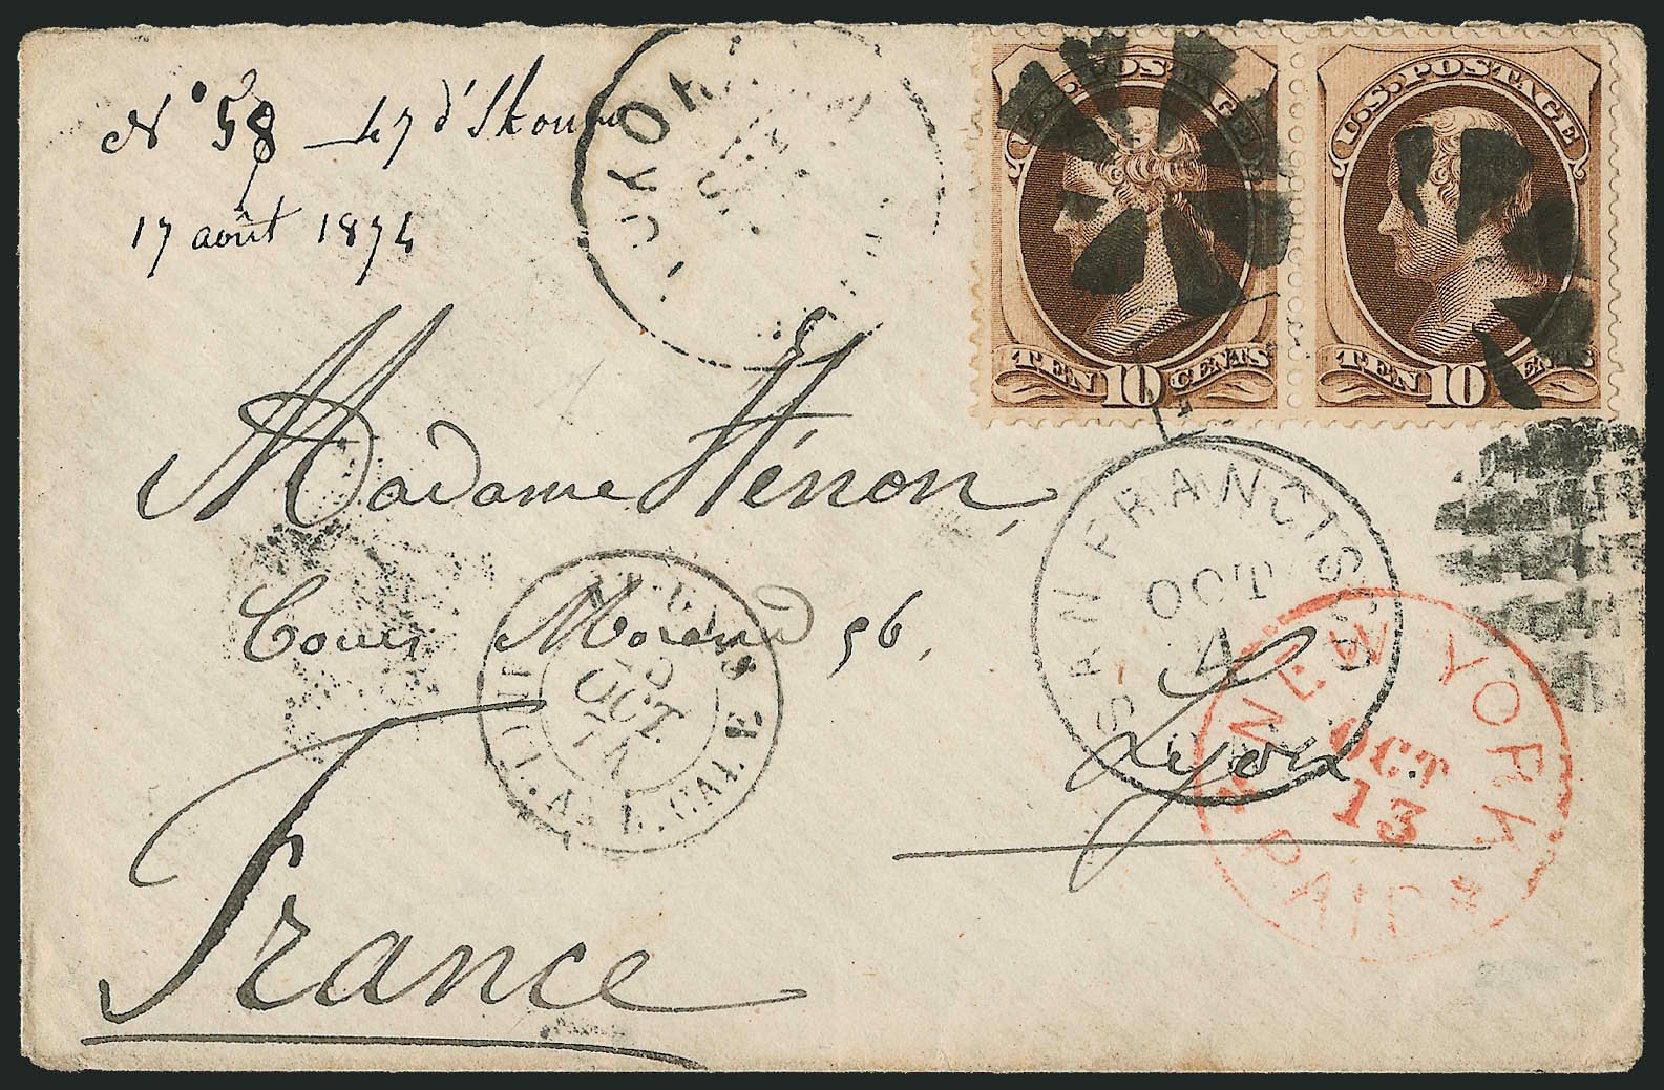 Nº 58 — 47 d'Ikouno
17 août 1874
YOKOHAMA
SEP
U.S. POSTAGE
TEN 10 CENTS
U.S. POSTAGE
TEN 10 CENTS
Madame Hénon,
Cours Morand 56,
Lyon
France
SAN FRANCISCO
OCT
4
NEW YORK
OCT
13
PAID
OCT
74
CALAIS